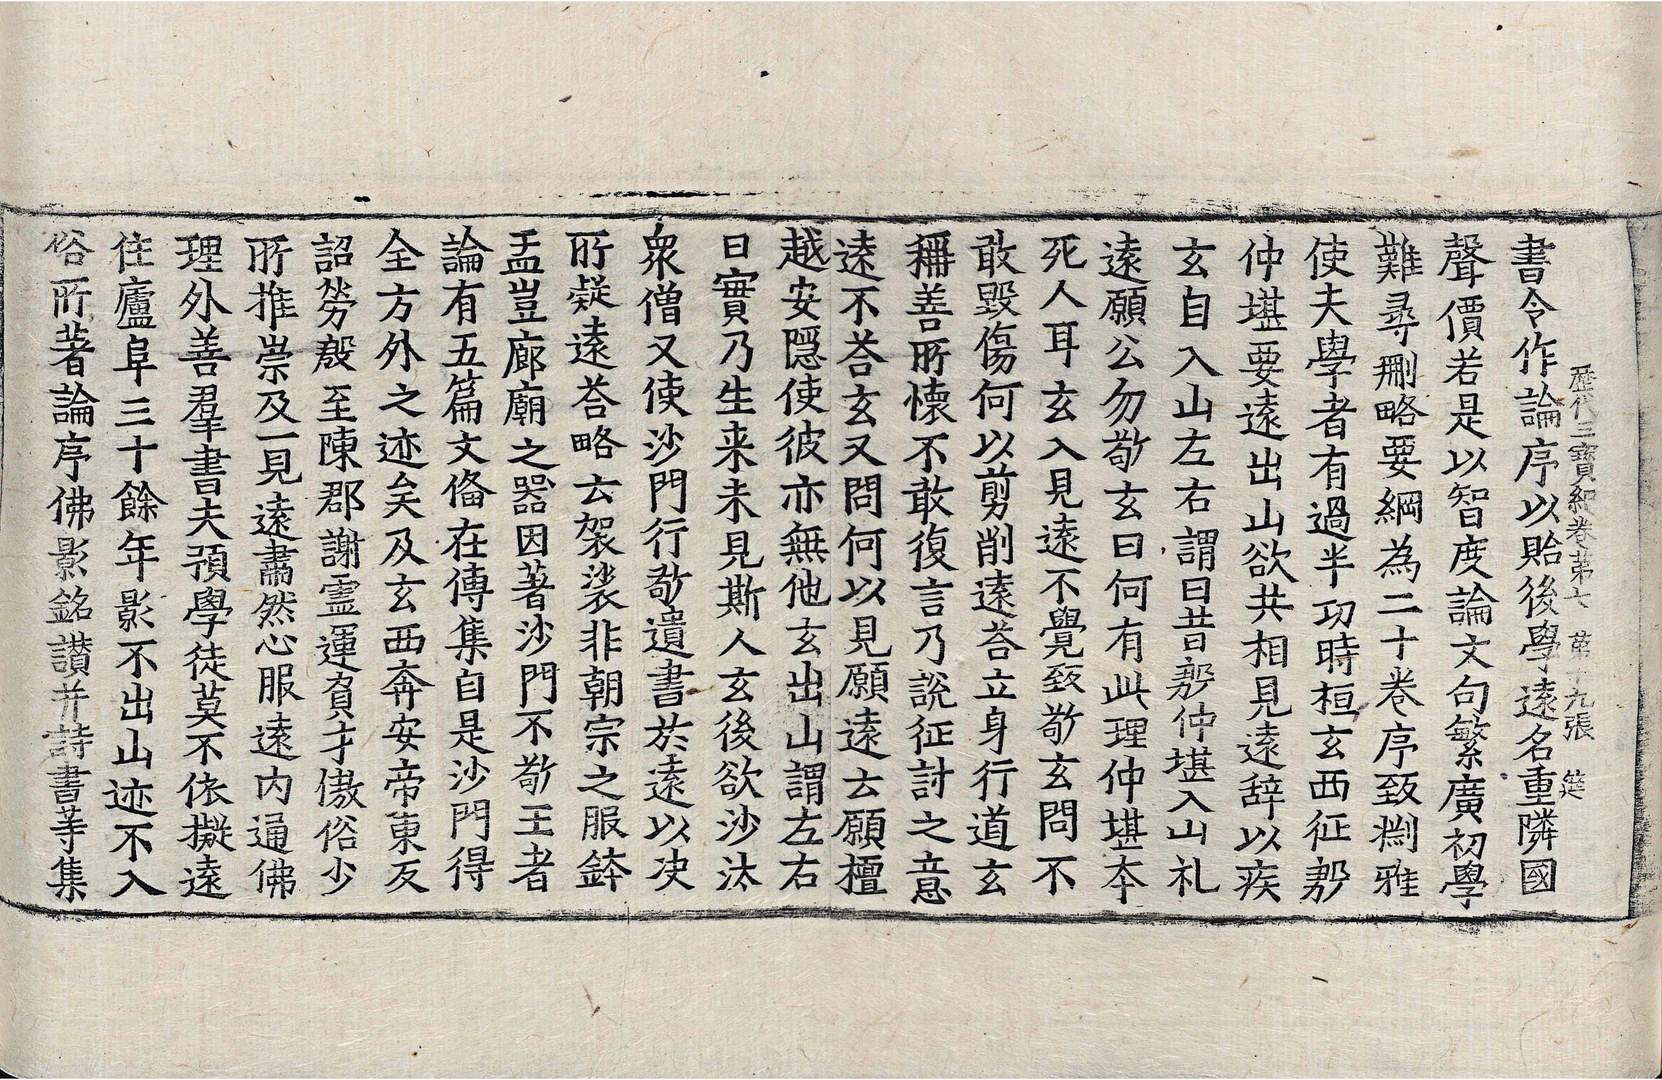 歷代三寶紀卷第七 第十九張 筵
書令作論序以貽後學遠名重隣國
聲價若是以智度論文句繁廣初學
難尋刪略要綱為二十卷序致淵雅
使夫學者有過半功時桓玄西征郣
仲堪要遠出山欲共相見遠辭以疾
玄自入山左右謂曰昔郣仲堪入山礼
遠願公勿敬玄曰何有此理仲堪夲
死人耳玄入見遠不覺致敬玄問不
敢毀傷何以剪削遠荅立身行道玄
稱善所懷不敢復言乃說征討之意
遠不荅玄又問何以見願遠云願檀
越安隱使彼亦無他玄出山謂左右
曰實乃生来未見斯人玄後欲沙汰
衆僧又使沙門行敬遺書於遠以决
所疑遠荅略云袈裟非朝宗之服鉢
盂豈廊廟之器因著沙門不敬王者
論有五篇文俻在傳集自是沙門得
全方外之迹矣及玄西奔安帝東反
詔勞慇至陳郡謝靈運負才傲俗少
所推崇及一見遠肅然心服遠內通佛
理外善羣書夫預學徒莫不依擬遠
住廬阜三十餘年影不出山迹不入
俗所著論序佛影銘讃并詩書等集